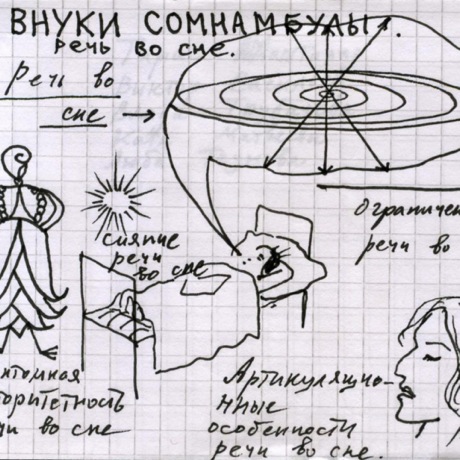 ВНУКИ СОМНАМБУЛЫ.
речь во сне.
речь во
сне
Ограничен
речи во
сияние
речи
во сне
нтомная
оритетность
чи во сне
Артикуляцио-
нные
особенности
речи во сне.